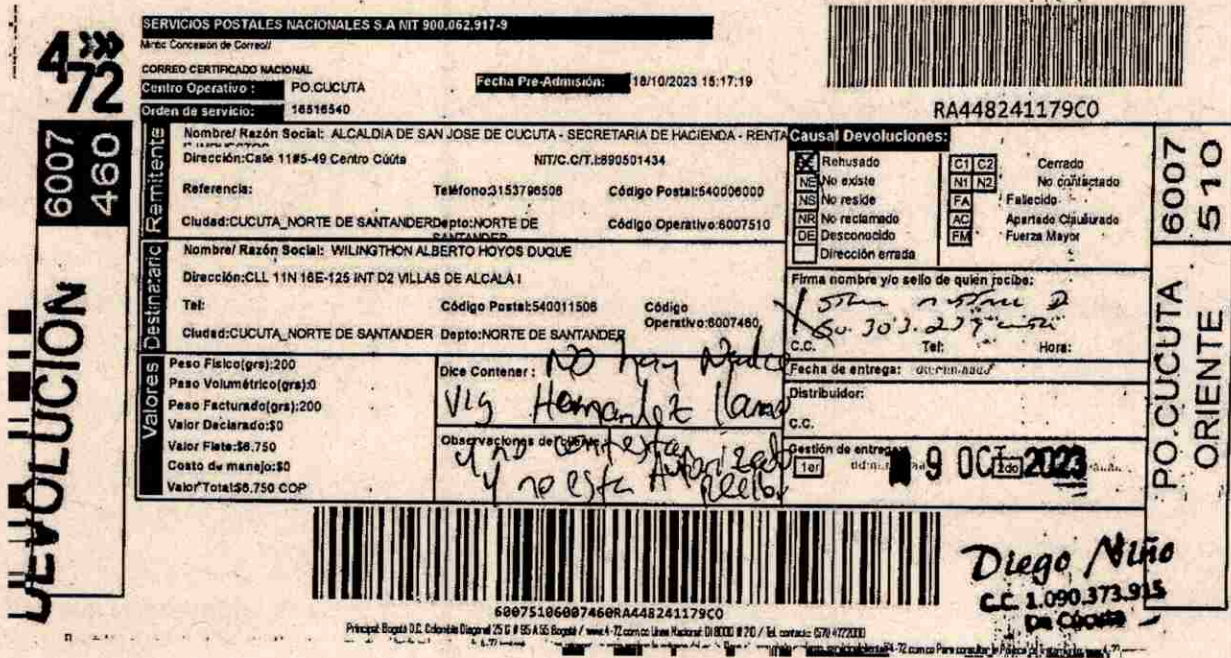 4-72
SERVICIOS POSTALES NACIONALES S.A NIT 900.062.917-9
Mintic Concesión de Correo//
CORREO CERTIFICADO NACIONAL
Centro Operativo : PO.CUCUTA
Fecha Pre-Admisión: 18/10/2023 15:17:19
Orden de servicio: 16516540
RA448241179CO
6007
460
DEVOLUCION
Remitente
Nombre/ Razón Social: ALCALDIA DE SAN JOSE DE CUCUTA - SECRETARIA DE HACIENDA - RENTA
E IMPUESTOS
Dirección:Calle 11#5-49 Centro Cúuta NIT/C.C/T.I:890501434
Referencia: Teléfono:3153796506 Código Postal:540006000
Ciudad:CUCUTA_NORTE DE SANTANDER Depto:NORTE DE
SANTANDER
Código Operativo:6007510
Destinatario
Nombre/ Razón Social: WILINGTHON ALBERTO HOYOS DUQUE
Dirección:CLL 11N 16E-125 INT D2 VILLAS DE ALCALA I
Tel: Código Postal:540011506 Código
Operativo:6007460
Ciudad:CUCUTA_NORTE DE SANTANDER Depto:NORTE DE SANTANDER
Valores
Peso Físico(grs):200
Peso Volumétrico(grs):0
Peso Facturado(grs):200
Valor Declarado:$0
Valor Flete:$6.750
Costo de manejo:$0
Valor Total:$6.750 COP
Dice Contener :
No hay Nadie
Vig Hernandez llamo
Observaciones del cliente
y no contestan
y no esta Autorizado
Recibir
Causal Devoluciones:
RE Rehusado
NE No existe
NS No reside
NR No reclamado
DE Desconocido
Dirección errada
C1 C2 Cerrado
N1 N2 No contactado
FA Fallecido
AC Apartado Clausurado
FM Fuerza Mayor
Firma nombre y/o sello de quien recibe:
C.C. Tel: Hora:
Fecha de entrega:
Distribuidor:
C.C.
Gestión de entrega:
1er 2do
9 OCT 2023
6007
510
PO.CUCUTA
ORIENTE
60075106007460RA448241179CO
Diego Niño
C.C. 1.090.373.915
De Cúcuta
Principal: Bogotá D.C. Colombia Diagonal 25 G # 95 A 55 Bogotá / www.4-72.com.co